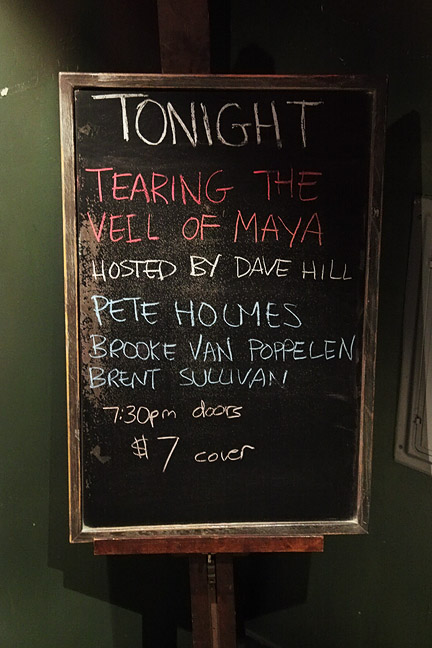 TONIGHT
TEARING THE
VEIL OF MAYA
HOSTED BY DAVE HILL
PETE HOLMES
BROOKE VAN POPPELEN
BRENT SULLIVAN
7:30pm doors
$7 cover